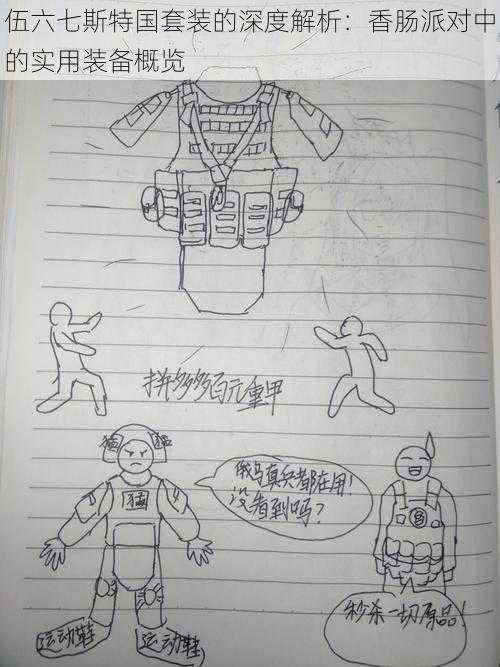 伍六七斯特国套装的深度解析：香肠派对中
的实用装备概览
拼多多百元重甲
猛
猛
猛
俄乌真兵都在用！
没看到吗？
秒杀一切原品！
运动鞋
运动鞋